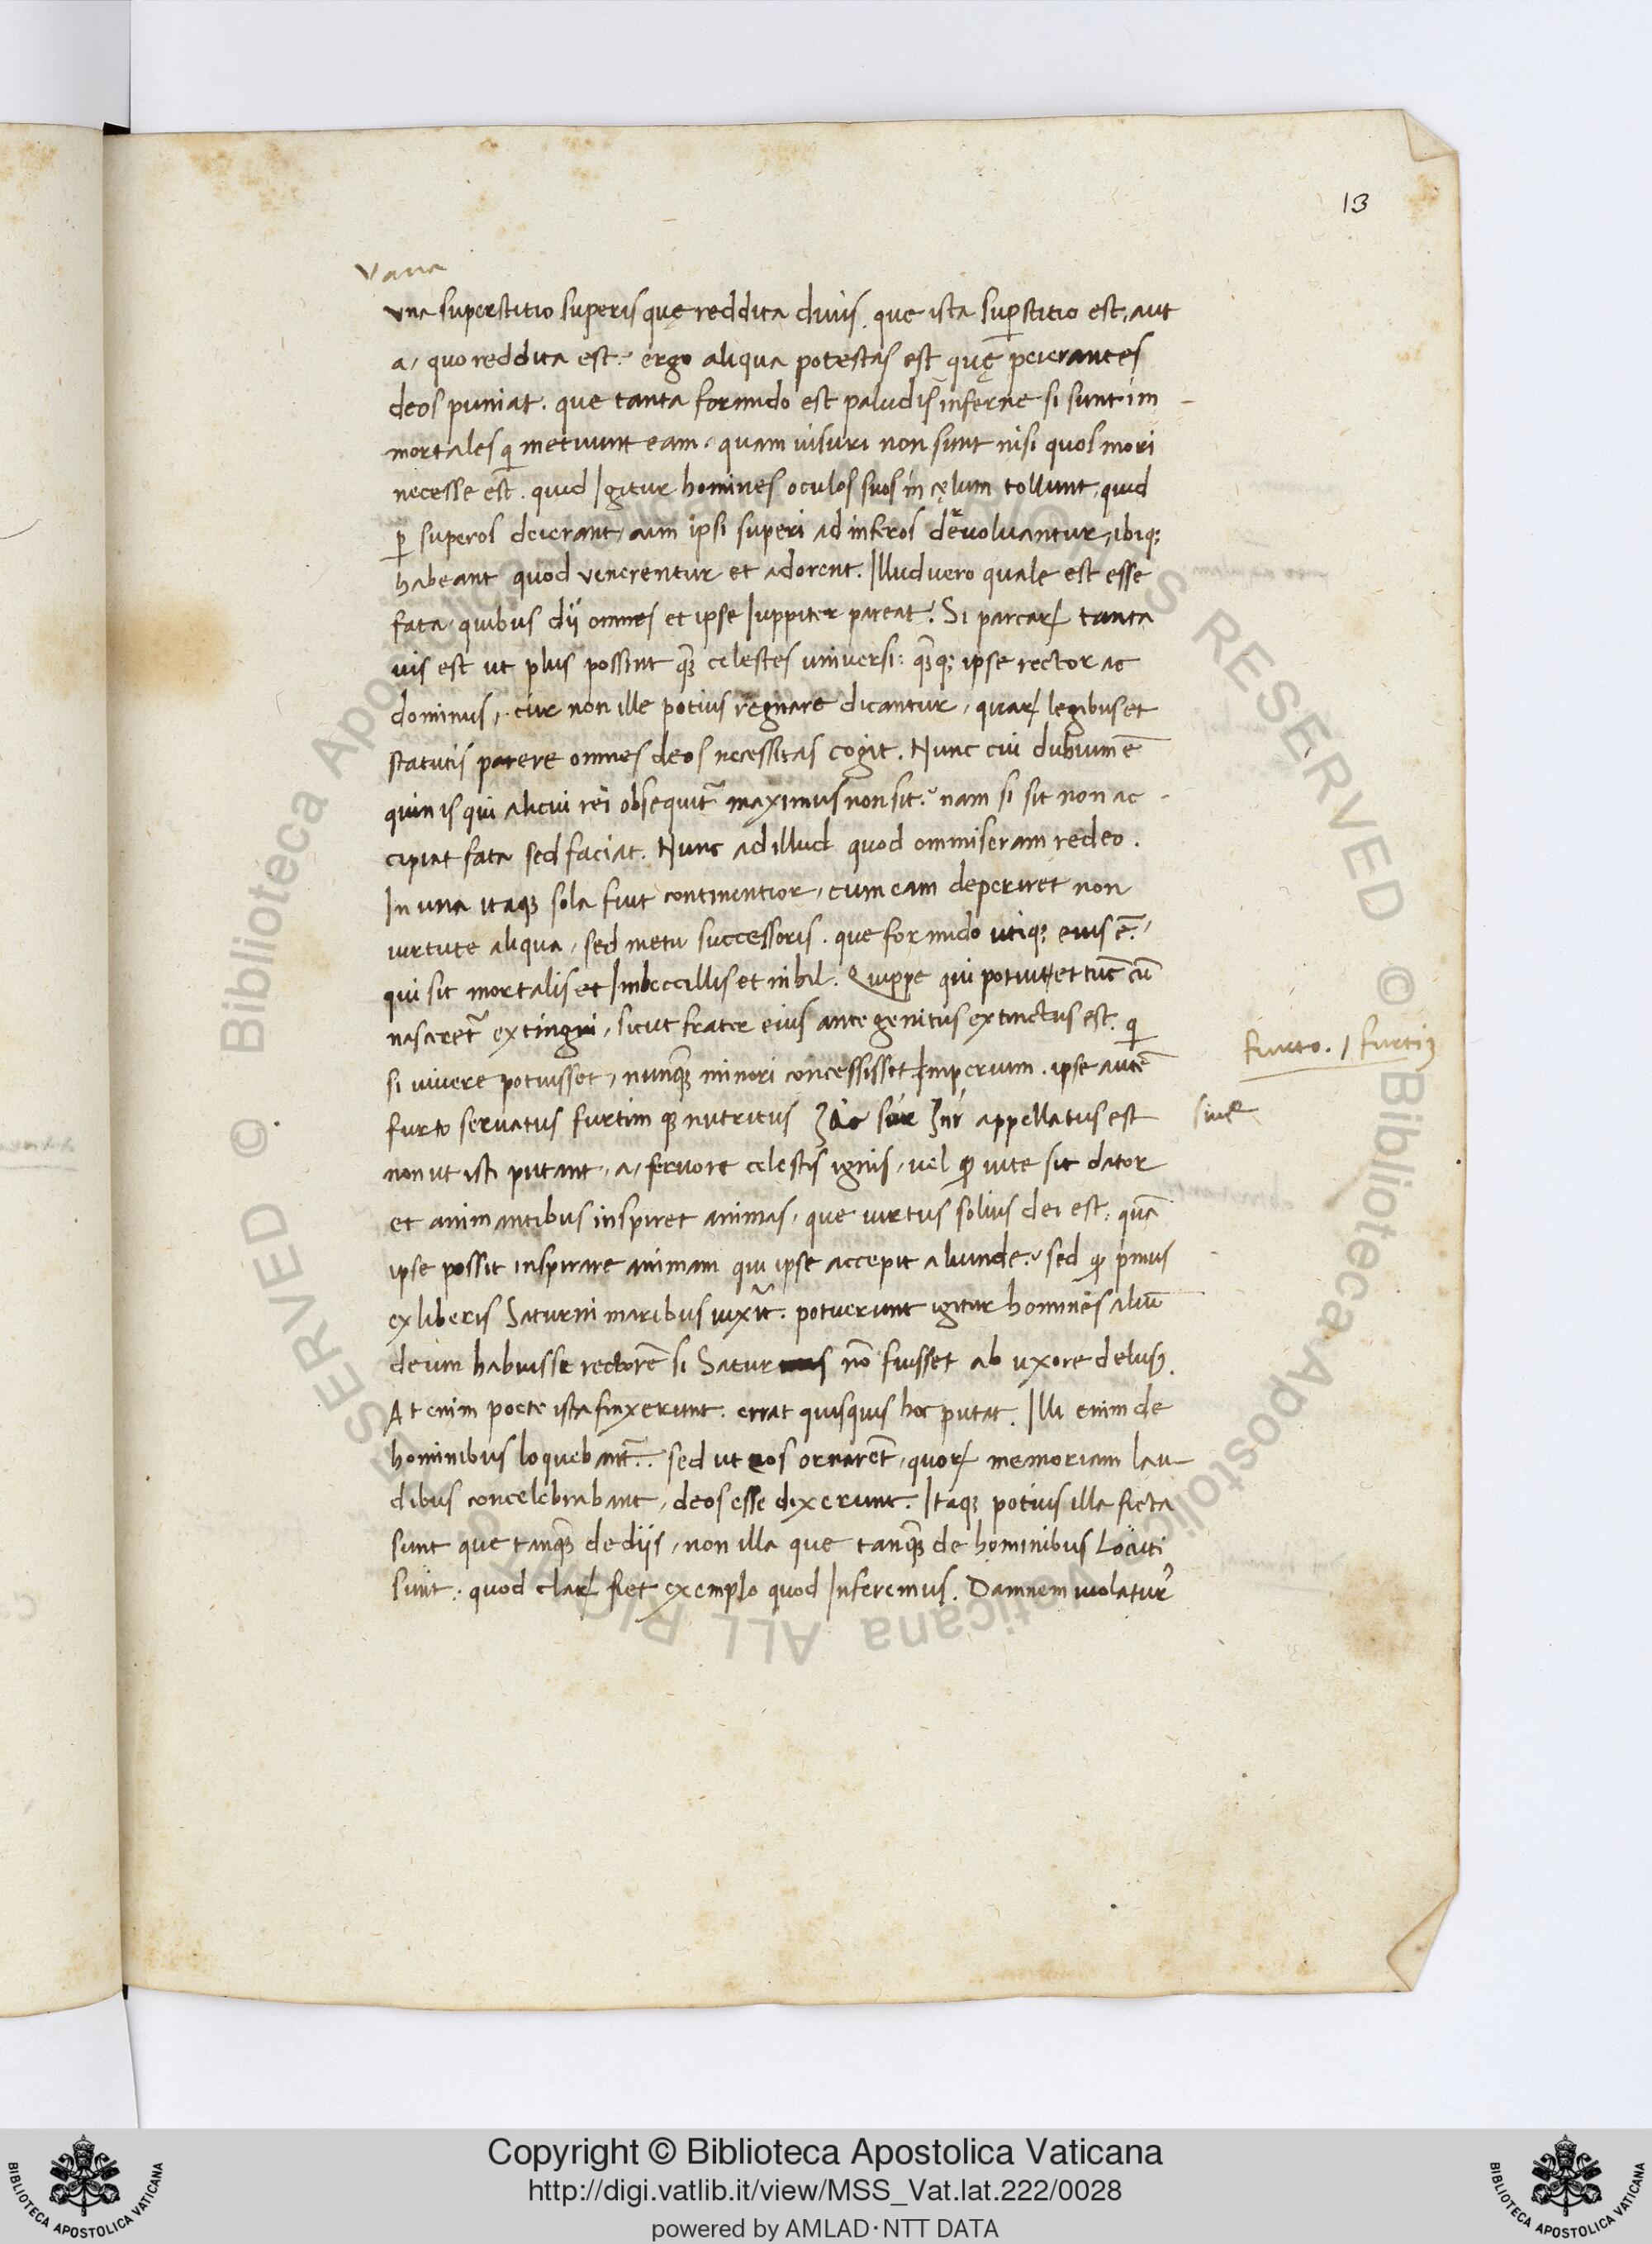 13
Vana
vna superstitio superis quę reddita diuis. que ista suꝑstitio est, aut
a, quo reddita est? ergo aliqua potestas est quę peierantes
deos puniat. que tanta formido est paludis inferne si sunt im-
mortales qi metuunt eam, quam uisuri non sunt nisi quos mori
necesse est. quid Igitur homines oculos suos in cęlum tollunt, quid
ꝑ superos deierant, cum ipsi superi ad inferos deuoluantur, ibiqꝫ
habeant quod venerentur et adorent. Illud uero quale est esse
fata, quibus dij omnes et ipse Iuppiter pareat? Si parcaꝝ tanta
uis est ut plus possint qꝫ celestes uniuersi: qꝫqꝫ ipse rector ac
dominus, cur non ille potius regnare dicantur, quaꝝ legibus et
statutis parere omnes deos necessitas cogit. Nunc cui dubium ē
quin is qui alicui rei obsequit᷑ maximus non sit? nam si sit non ac-
cipiat fata sed faciat. Nunc ad illud quod ommiseram redeo.
In una itaqꝫ sola fuit continentior, cum eam deperiret non
uirtute aliqua, sed metu successoris. que formido utiqꝫ eius ē,
qui sit mortalis et Imbecillis et nihil. Quippe qui potuit et tūc cū
nasceret᷑ extingui, sicut frater eius ante genitus extinctus est. qi
si uiuere potuisset, nunqꝫ minori concessisset Imperium. ipse autē
furto. / furtiꝫ
furto seruatus furtim qꝫ nutritus appellatus est
siue
non ut isti putant, a, feruore celestis ignis, uel ꝙ uite sit dator
et animantibus inspiret animas, que uirtus solius dei est: quā
ipse possit inspirare animam qui ipse accepit aliunde? sed ꝙ pͥmus
ex liberis Saturni maribus uixit. potuerunt igitur homines aliū
deum habuisse rectorē si Saturnus nō fuisset ab uxore delusꝰ.
At enim poete ista finxerunt. errat quisquis hoc putat. Illi enim de
hominibus loquebant᷑. sed ut eos ornarēt, quoꝝ memoriam lau-
dibus concelebrabant, deos esse dixerunt. Itaqꝫ potius illa ficta
sunt que tanqꝫ de diis, non illa que tanqꝫ de hominibus Locuti
sunt. quod claꝝ fiet exemplo quod Inferemus. Damnem uiolatur᷑
© Biblioteca Apostolica Vaticana ALL RIGHTS RESERVED
Copyright © Biblioteca Apostolica Vaticana
http://digi.vatlib.it/view/MSS_Vat.lat.222/0028
powered by AMLAD·NTT DATA
BIBLIOTECA APOSTOLICA VATICANA
BIBLIOTECA APOSTOLICA VATICANA